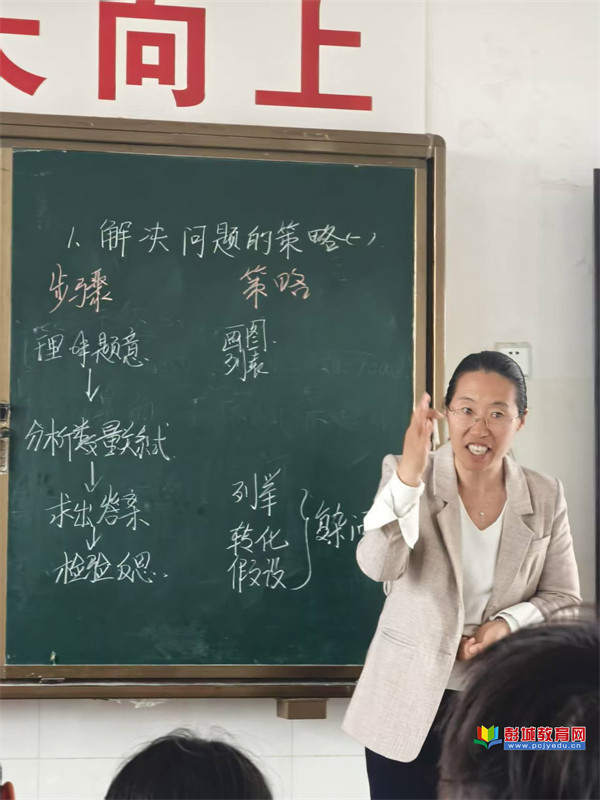 天向上
1、解决问题的策略(一)
步骤 策略
理解题意 画图
列表
↓
分析数量关系式
↓
列举
求出答案 转化 复杂问
↓
检验反思. 假设
彭城教育网
www.pcjyedu.cn